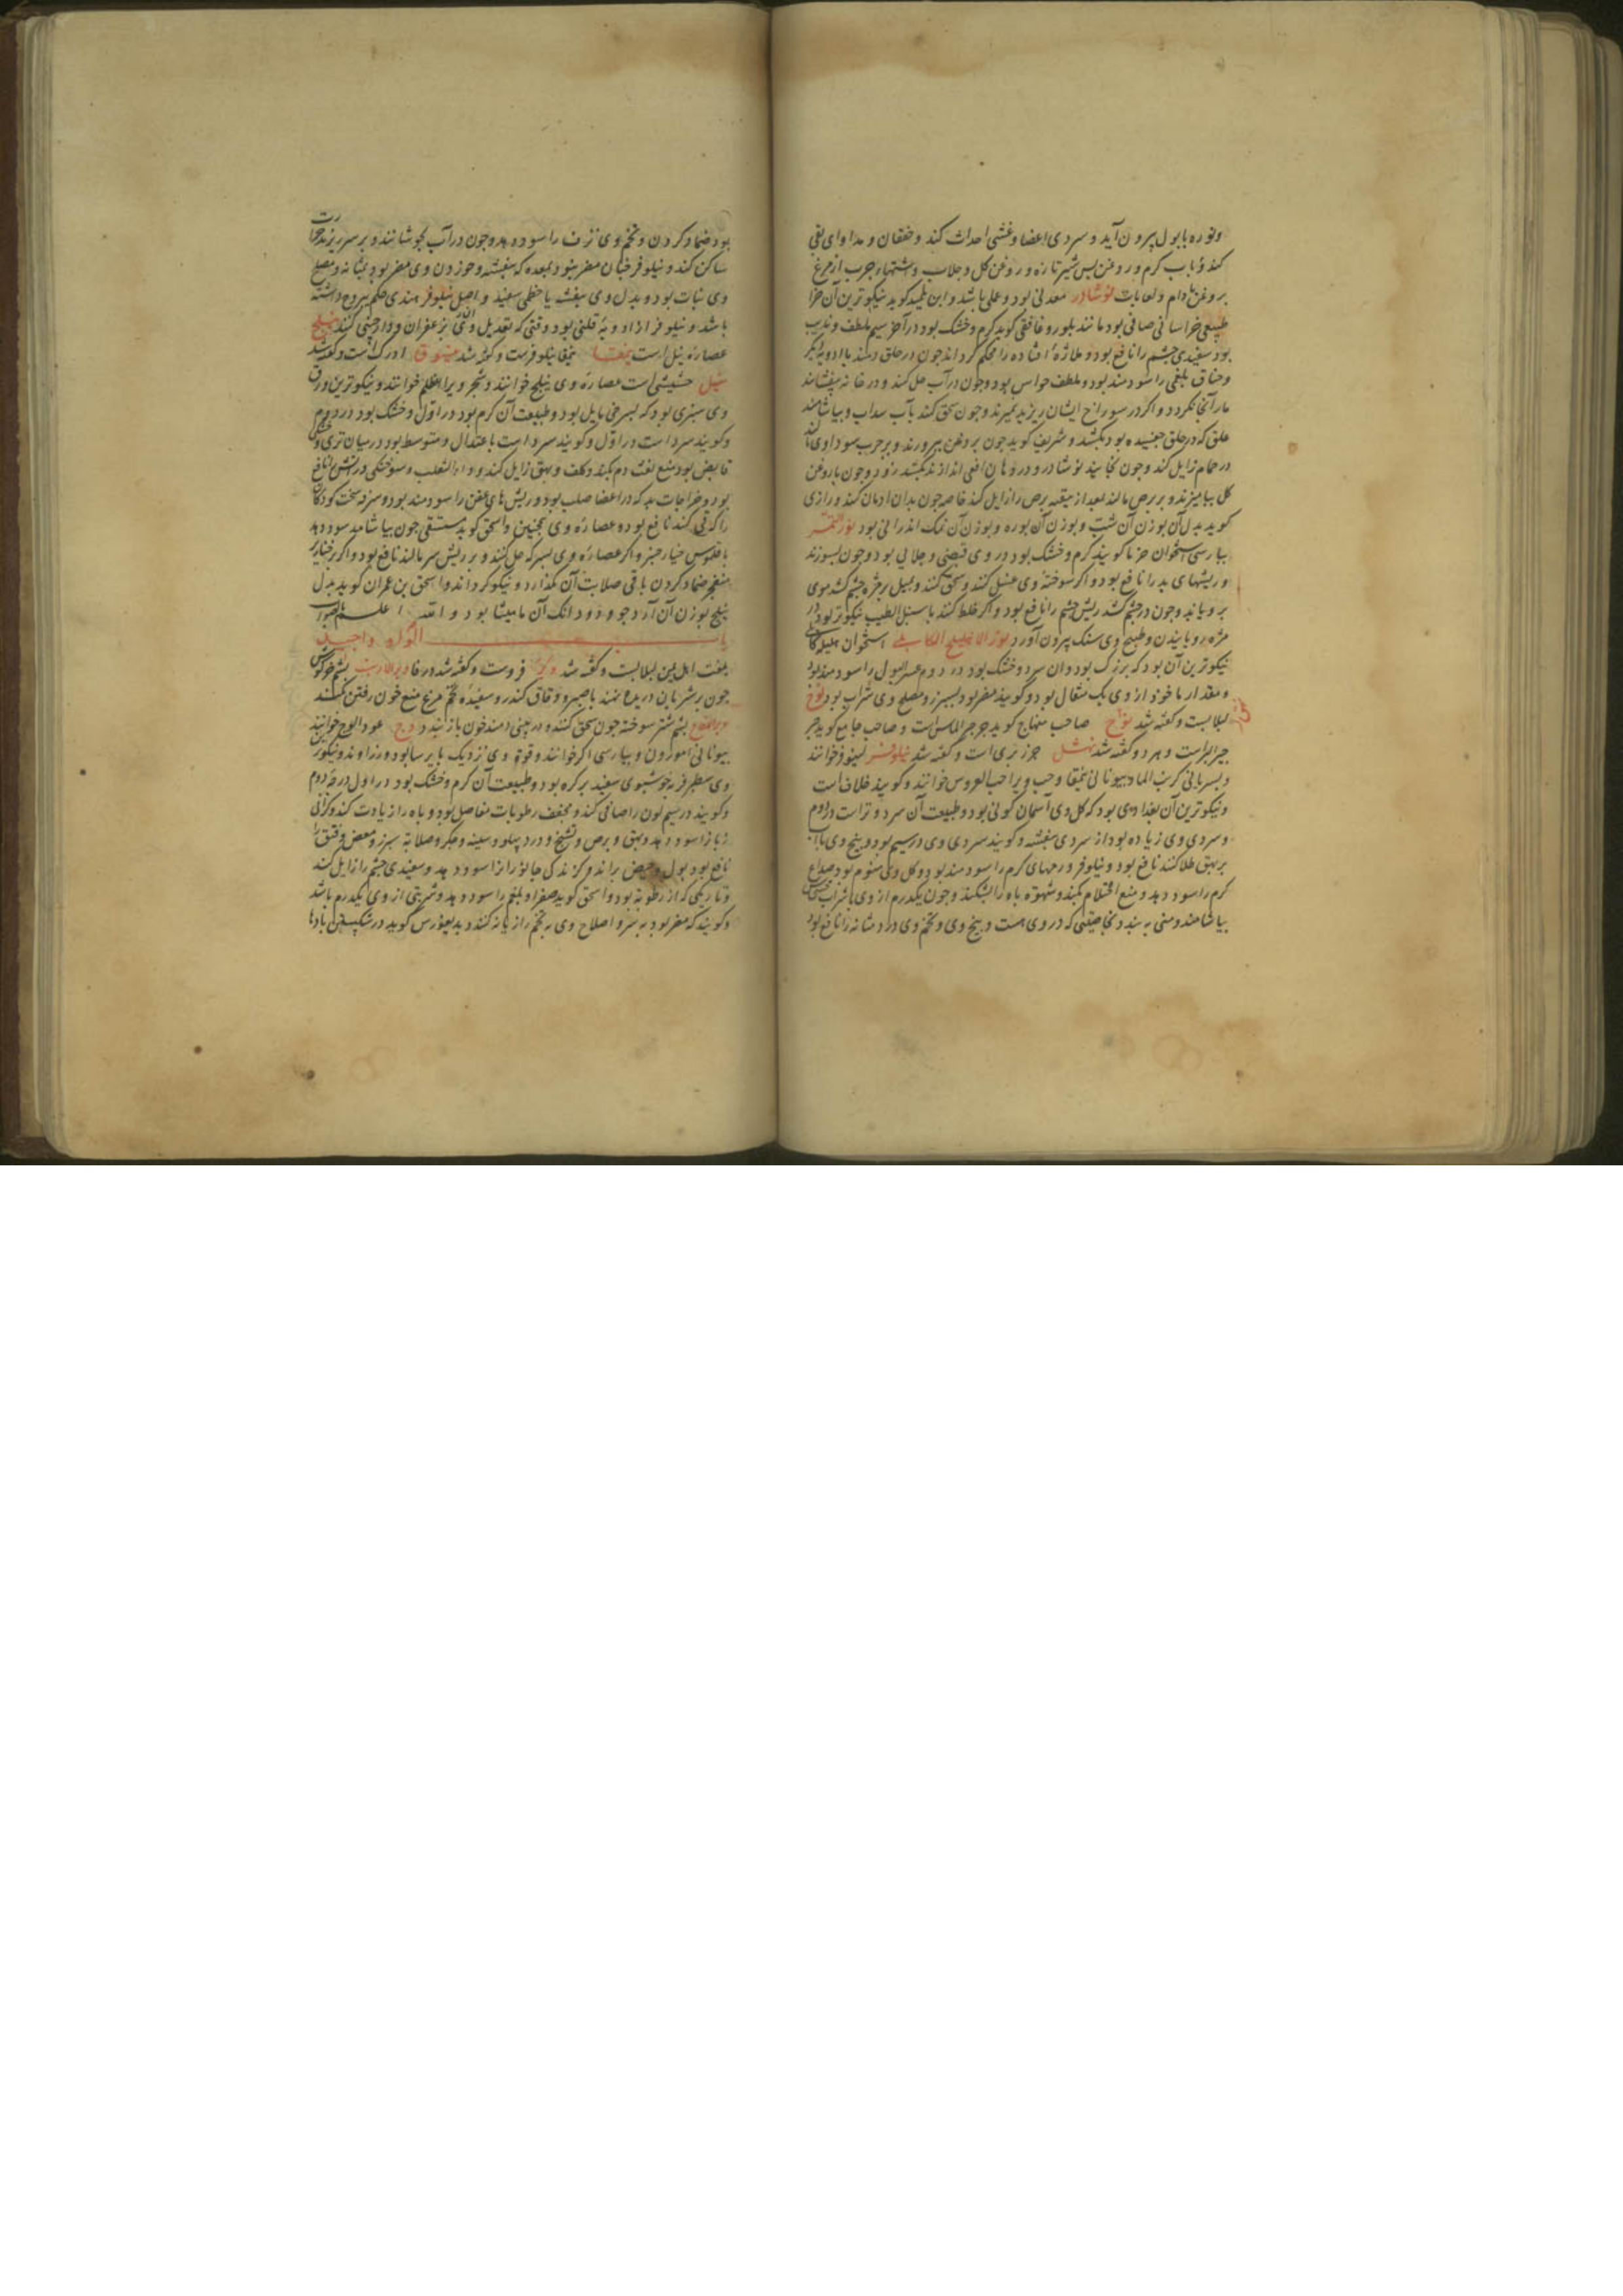 ونوره با بول بیرون آید و سردی اعضا و غشی احداث کند و خفقان و مداوای بقی
کند باب کرم و روغن بس شیر تازه و روغن کل و جلاب و اشتهاء چرب از مرغ
بروغن بادام و لعابات نوشادر معدنی بود و عملی باشد و ابن تلمید کوید نیکوترین آن
طبیعی خراسانی صافی بود مانند بلور و غافقی کوید کرم و خشک بود در آخر سیم ملطف و مذیب
بود سفیدی چشم را نافع بود و ملازه افتاده را محکم کرداند چون در حلق دمند با ادویه دیکر
وخناق بلغمی را سودمند بود و ملطف حواس بود و چون در آب حل کنند و در خانه بیفشانند
مار آنجا نکردد و اکر در سوراخ ایشان ریزند بمیرند و چون سحق کنند بآب سداب و بیاشامند
علق که در حلق چفسیده بود بکشد و شریف کوید چون بروغن بپرورند و بر جرب سوداوی مالند
در حمام زایل کند و چون بخایند نوشادر و در دهان افعی اندازند بکشد زود و چون با روغن
کل بیامیزند و بر برص مالند بعد از تنقیه برص را زایل کند خاصه چون بدان ادمان کنند و رازی
کوید بدل آن بوزن آن شب و بوزن آن بوره و بوزن آن نمک اندرانی بود نوی التمر
بپارسی استخوان خرما کویند کرم و خشک بود در وی قبضی و جلایی بود و چون بسوزند
وریشهای بد را نافع بود و اکر سوخته وی غسل کنند و سحق کنند و بمیل بر مژه چشم کشد موی
برویاند و چون در چشم کشد ریش چشم را نافع بود و اکر خلط کنند با سنبل الطیب نیکوتر بود در
مژه رویانیدن و طبیخ وی سنک بیرون آورد نوی الاهلیلج الکابلی استخوان هلیله کابلی
نیکوترین آن بود که بزرک بود و ان سرد و خشک بود در دوم عسر البول را سودمند بود
و مقدار ماخوذ از وی یک مثقال بود و کویند مضر بود بسپرز و مصلح وی شراب بود
لبلابست و کفته شد صاحب منهاج کوید حجر الماس است و صاحب جامع کوید حجر
و هر دو کفته شد نهشل جزر بری است و کفته شد نیلوفر لینوفر خوانند
و بسریانی کرنب الماء و بیونانی نمفا و حب ویرا حب العروس خوانند و کویند خلاف است
و نیکوترین آن بغدادی بود که کل وی آسمان کونی بود و طبیعت آن سرد و تر است در دوم
و سردی وی زیاده بود از سردی بنفشه و کویند سردی وی در سیم بود و بیخ وی باب
بر بهق طلا کنند نافع بود و نیلوفر ورمهای کرم را سودمند بود و کل وی منوم بود صداع
کرم را سود دهد و منع احتلام بکند و شهوه باه را بشکند و چون یکدرم از وی با شراب خشخاش
بیاشامند و منی ببندد بخاصیتی که در وی هست و بیخ وی و تخم وی درد مثانه را نافع بود
بود ضماد کردن و تخم وی نزف را سود دهد و چون در آب بجوشانند و بر سر ریزند حرارت
ساکن کند و نیلوفر چنان مضر نبود بمعده که بنفشه و خوردن وی مضر بود بمثانه و مصلح
وی نبات بود و بدل وی بنفشه یا خطمی سفید و اصل نیلوفر هندی حکم یبروح داشته
باشد و نیلوفر وقتی که تعدیل وی بزعفران و دارچینی کنند نیلج
عصاره نیل است نمفا نیلوفرست و کفته شد ادرک است و کفته شد
نیل حشیشی است عصاره وی نیلج خوانند و شجر ویرا العظلم خوانند و نیکوترین ورق
وی سبزی بود که بسرخی مایل بود و طبیعت آن کرم بود در اول و خشک بود در دوم
وکویند سرد است در اول و کویند سرد است باعتدال و متوسط بود در میان تری و خشکی
قابض بود منع نفث دم بکند و کلف و بهق زایل کند و داء الثعلب و سوختکی در آتش را نافع
بود و خراجات بد که در اعضا صلب بود و ریش های عفن را سودمند بود و سرفه سخت کودکان
را که قی کنند نافع بود و عصاره وی همچنین و اسحق کوید مستسقی چون بیاشامد سود دهد
با فلوس خیار چنبر و اکر عصاره وی بسرکه حل کنند و بر ریش سر مالند نافع بود و اکر بر خنازیر
منفجر ضماد کردن باقی صلابت آن بکدازد و نیکو کرداند و اسحق بن عمران کوید بدل
نیلج بوزن آن آرد جو و دو دانک آن مامیثا بود و الله اعلم بالصواب
باب الواو
بلغت اهل یمن لبلابست و کفته شد فروست و کفته شد در فا وبر الارنب پشم خرکوش
چون بر شریان دریده نهند با صبر و دقاق کندر و سفیده تخم مرغ منع خون رفتن بکند
پشم شتر سوخته چون سحق کنند و در بینی دمند خون باز بندد وج عود الوج خوانند
بیونانی امورون و بپارسی اکر خوانند و قوة وی نزدیک بایرسا بود و زراوند و نیکوترین
وی سطبر فربه خوشبوی سفید پر کره بود و طبیعت آن کرم و خشک بود در اول درجه دوم
و کویند در سیم لون را صافی کند و مجفف رطوبات مفاصل بود و باه را زیادت کند و کرانی
زبان را سود دهد و بهق و برص و تشنج و درد پهلو و سینه و جکر و صلابه سپرز و مغص و فتق را
نافع بود بول و حیض براند و کزندکی جانوران را سود دهد و سفیدی چشم را زایل کند
و تاریکی که از رطوبة بود و اسحق کوید صفرا و بلغم را سود دهد و شربتی از وی یکدرم باشد
و کویند که مضر بود بسر و اصلاح وی بتخم رازیانه کنند و دیسقوریدس کوید در شکستن بادها